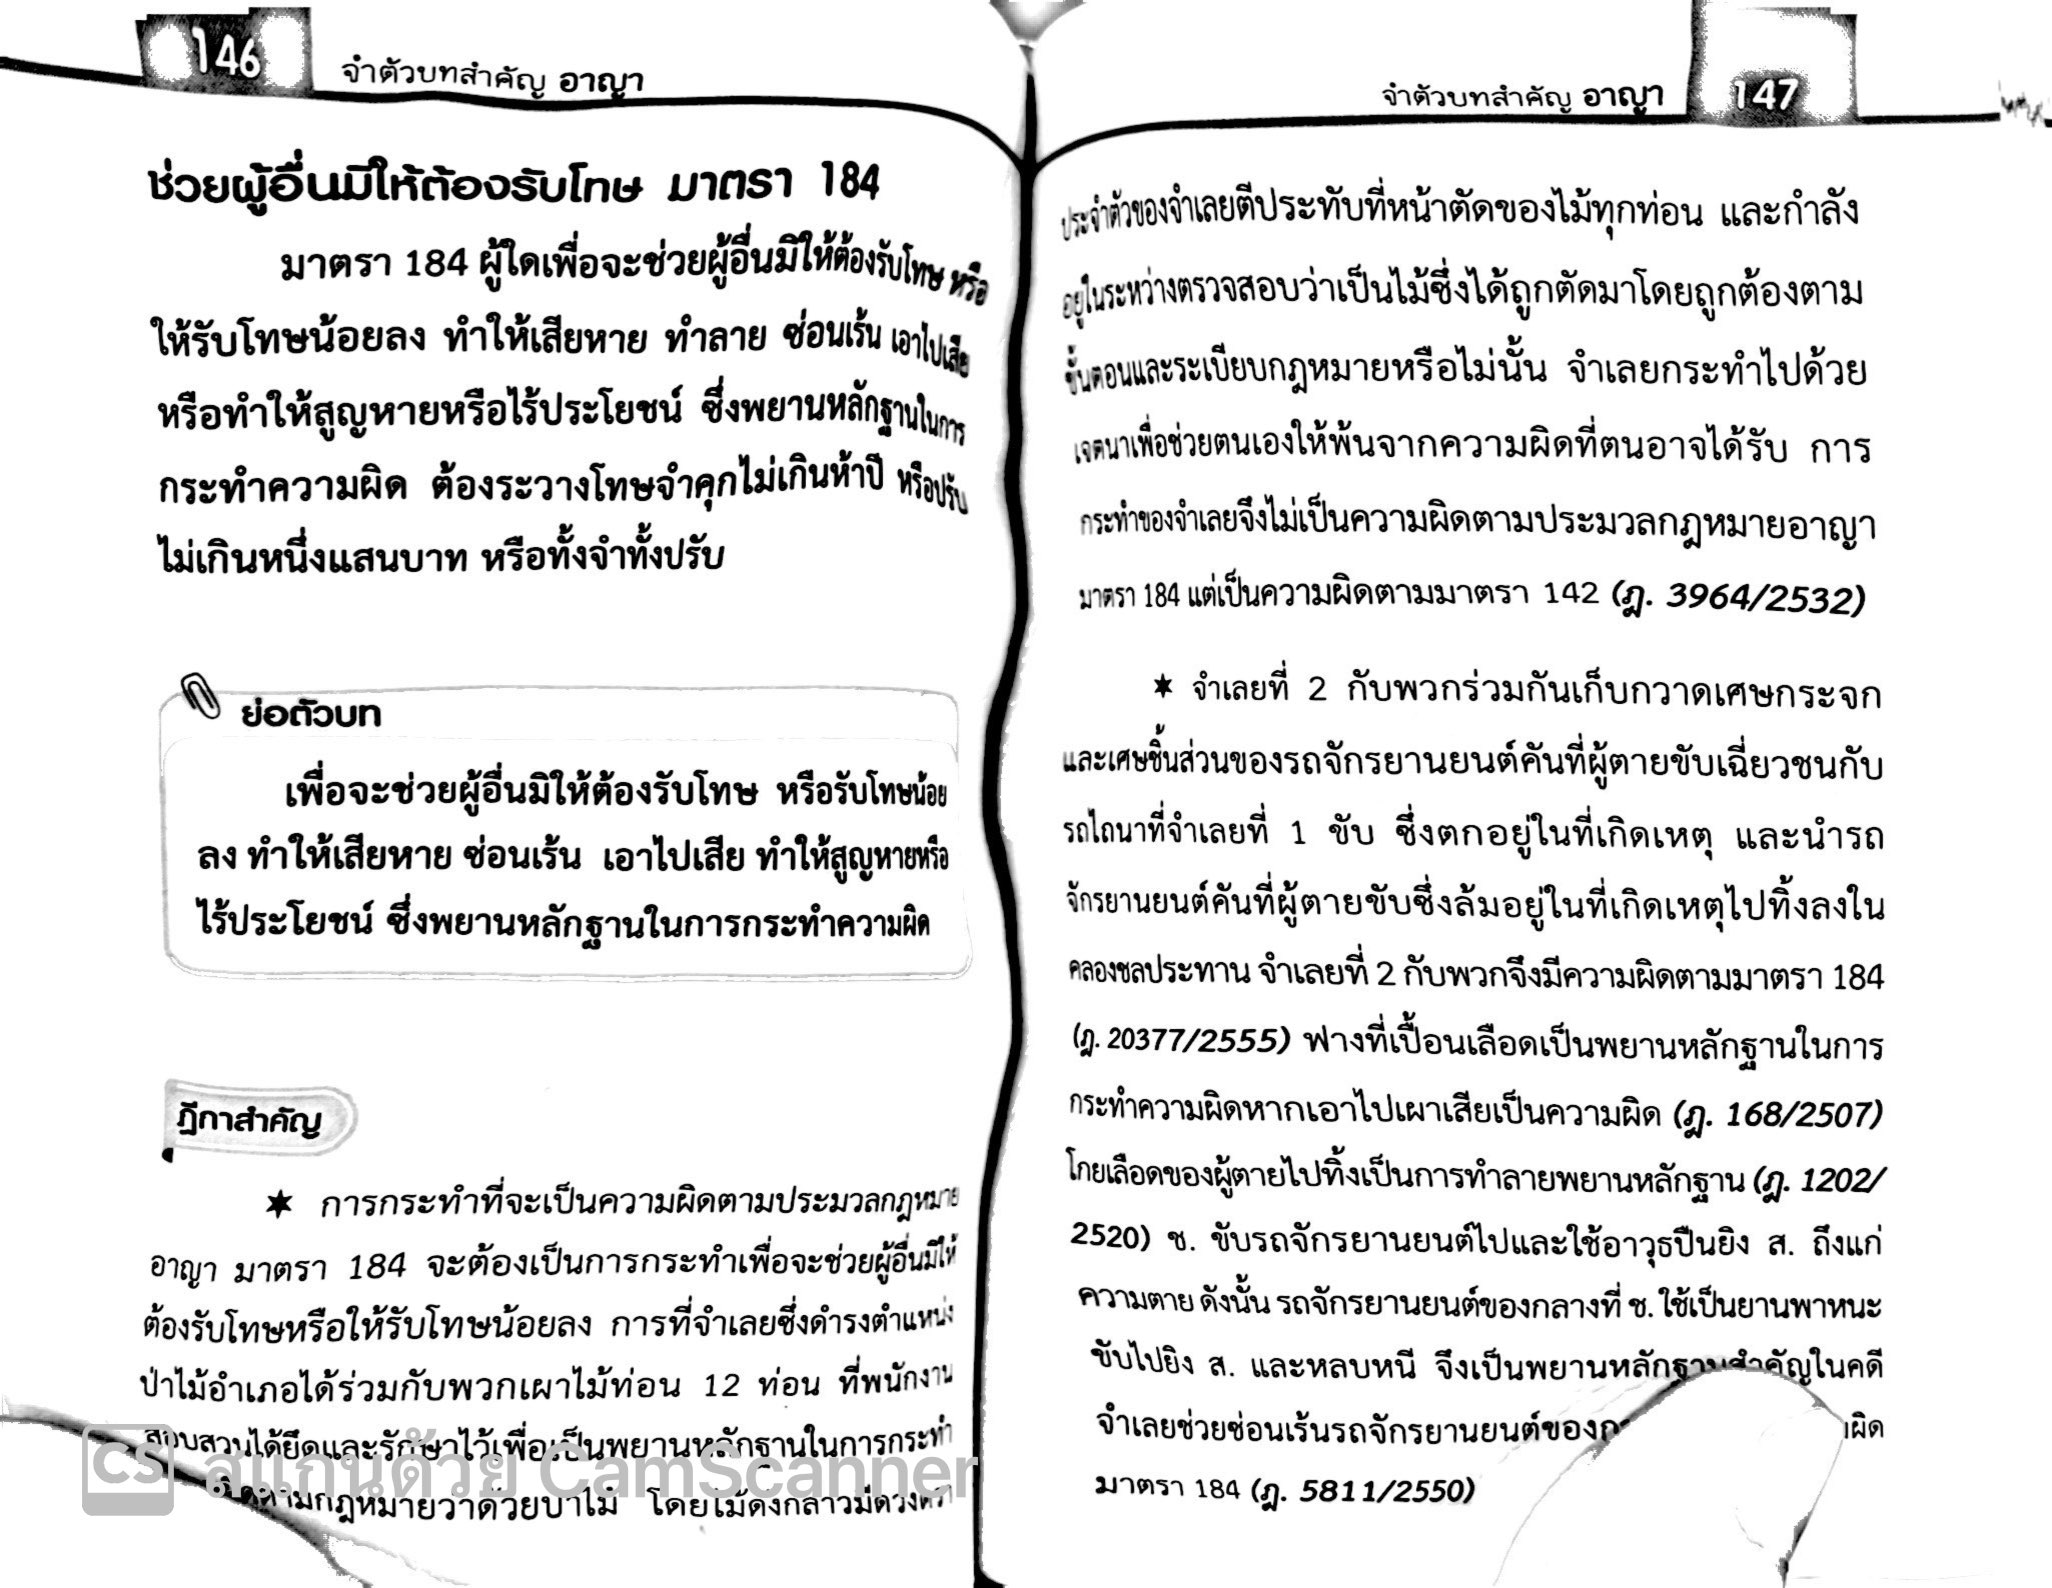 146
จำตัวบทสำคัญ อาญา
ช่วยผู้อื่นมิให้ต้องรับโทษ มาตรา 184
มาตรา 184 ผู้ใดเพื่อจะช่วยผู้อื่นมิให้ต้องรับโทษ หรือ
ให้รับโทษน้อยลง ทำให้เสียหาย ทำลาย ซ่อนเร้น เอาไปเสีย
หรือทำให้สูญหายหรือไร้ประโยชน์ ซึ่งพยานหลักฐานในการ
กระทำความผิด ต้องระวางโทษจำคุกไม่เกินห้าปี หรือปรับ
ไม่เกินหนึ่งแสนบาท หรือทั้งจำทั้งปรับ
ย่อตัวบท
เพื่อจะช่วยผู้อื่นมิให้ต้องรับโทษ หรือรับโทษน้อย
ลง ทำให้เสียหาย ซ่อนเร้น เอาไปเสีย ทำให้สูญหายหรือ
ไร้ประโยชน์ ซึ่งพยานหลักฐานในการกระทำความผิด
ฎีกาสำคัญ
★ การกระทำที่จะเป็นความผิดตามประมวลกฎหมาย
อาญา มาตรา 184 จะต้องเป็นการกระทำเพื่อจะช่วยผู้อื่นมิให้
ต้องรับโทษหรือให้รับโทษน้อยลง การที่จำเลยซึ่งดำรงตำแหน่ง
ป่าไม้อำเภอได้ร่วมกับพวกเผาไม้ท่อน 12 ท่อน ที่พนักงาน
สอบสวนได้ยึดและรักษาไว้เพื่อเป็นพยานหลักฐานในการกระทำ
ตามกฎหมายว่าด้วยป่าไม้ โดยไม้ดังกล่าวมีดวงตรา
CS สแกนด้วย CamScanner
จำตัวบทสำคัญ อาญา
147
ประจำตัวของจำเลยตีประทับที่หน้าตัดของไม้ทุกท่อน และกำลัง
อยู่ในระหว่างตรวจสอบว่าเป็นไม้ซึ่งได้ถูกตัดมาโดยถูกต้องตาม
ขั้นตอนและระเบียบกฎหมายหรือไม่นั้น จำเลยกระทำไปด้วย
เจตนาเพื่อช่วยตนเองให้พ้นจากความผิดที่ตนอาจได้รับ การ
กระทำของจำเลยจึงไม่เป็นความผิดตามประมวลกฎหมายอาญา
มาตรา 184 แต่เป็นความผิดตามมาตรา 142 (ฎ. 3964/2532)
★ จำเลยที่ 2 กับพวกร่วมกันเก็บกวาดเศษกระจก
และเศษชิ้นส่วนของรถจักรยานยนต์คันที่ผู้ตายขับเฉี่ยวชนกับ
รถไถนาที่จำเลยที่ 1 ขับ ซึ่งตกอยู่ในที่เกิดเหตุ และนำรถ
จักรยานยนต์คันที่ผู้ตายขับซึ่งล้มอยู่ในที่เกิดเหตุไปทิ้งลงใน
คลองชลประทาน จำเลยที่ 2 กับพวกจึงมีความผิดตามมาตรา 184
(ฎ. 20377/2555) ฟางที่เปื้อนเลือดเป็นพยานหลักฐานในการ
กระทำความผิดหากเอาไปเผาเสียเป็นความผิด (ฎ. 168/2507)
โกยเลือดของผู้ตายไปทิ้งเป็นการทำลายพยานหลักฐาน (ฎ. 1202/
2520) ช. ขับรถจักรยานยนต์ไปและใช้อาวุธปืนยิง ส. ถึงแก่
ความตาย ดังนั้น รถจักรยานยนต์ของกลางที่ ช. ใช้เป็นยานพาหนะ
ขับไปยิง ส. และหลบหนี จึงเป็นพยานหลักฐานสำคัญในคดี
จำเลยช่วยซ่อนเร้นรถจักรยานยนต์ของก ผิด
มาตรา 184 (ฎ. 5811/2550)